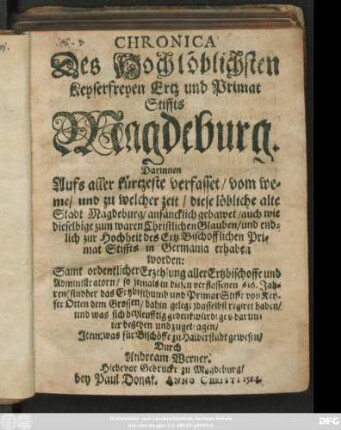 CHRONICA
Des Hochlöblichsten
Keyserfreyen Ertz und Primat
Stiffts
Magdeburg.
Darinnen
Auffs aller kürtzeste verfasset / vom we-
me / und zu welcher zeit / diese löbliche alte
Stadt Magdeburg / anfäncklich gebawet / auch wie
dieselbige zum waren Christlichen Glauben / und end-
lich zur Hochheit des Ertz Bischofflichen Pri-
mat Stiffts in Germania erhaben
worden:
Samt ordentlicher Erzehlung aller Ertzbischoffe und
Administratorn / so jemals in diesen verflossenen 616. Jah-
ren / sind der das Ertzbischthumb und Primat Stifft von Key-
ser Otten dem Grossen / dahin gelegt / daselbst regiret haben /
und was sich beyleufftig gedenckwirdiges darun-
ter begeben und zugetragen /
Item / was für Bischöffe zu Halberstadt gewesen /
Durch
Andream Werner.
Hiebevor Gedruckt zu Magdeburg /
bey Paul Donat. ANNO CHRISTI 1584.